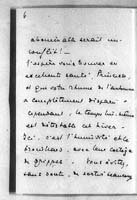 6
abominable serait un-
conflit! —
J'espère vous trouver en
excellente santé, Princesse,
et que votre rhume de l'automne
a complètement disparu.
Cependant, le temps lui-même
est détestable cet hiver.
Ici, c'est l'humidité et le
brouillard, avec leur cortège
de grippes. Vous évitez,
sans doute, de sortir